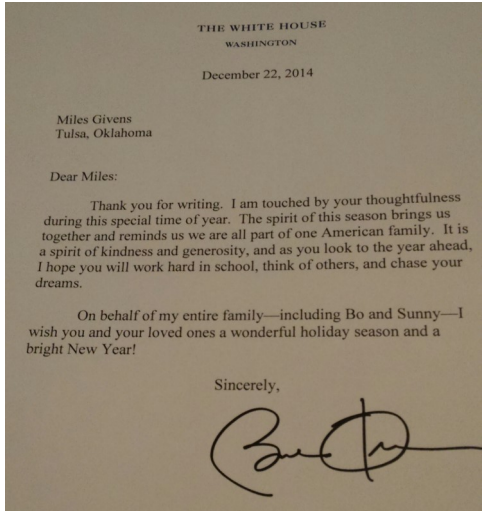 THE WHITE HOUSE
WASHINGTON
December 22, 2014
Miles Givens
Tulsa, Oklahoma
Dear Miles:
Thank you for writing. I am touched by your thoughtfulness
during this special time of year. The spirit of this season brings us
together and reminds us we are all part of one American family. It is
a spirit of kindness and generosity, and as you look to the year ahead,
I hope you will work hard in school, think of others, and chase your
dreams.
On behalf of my entire family—including Bo and Sunny—I
wish you and your loved ones a wonderful holiday season and a
bright New Year!
Sincerely,